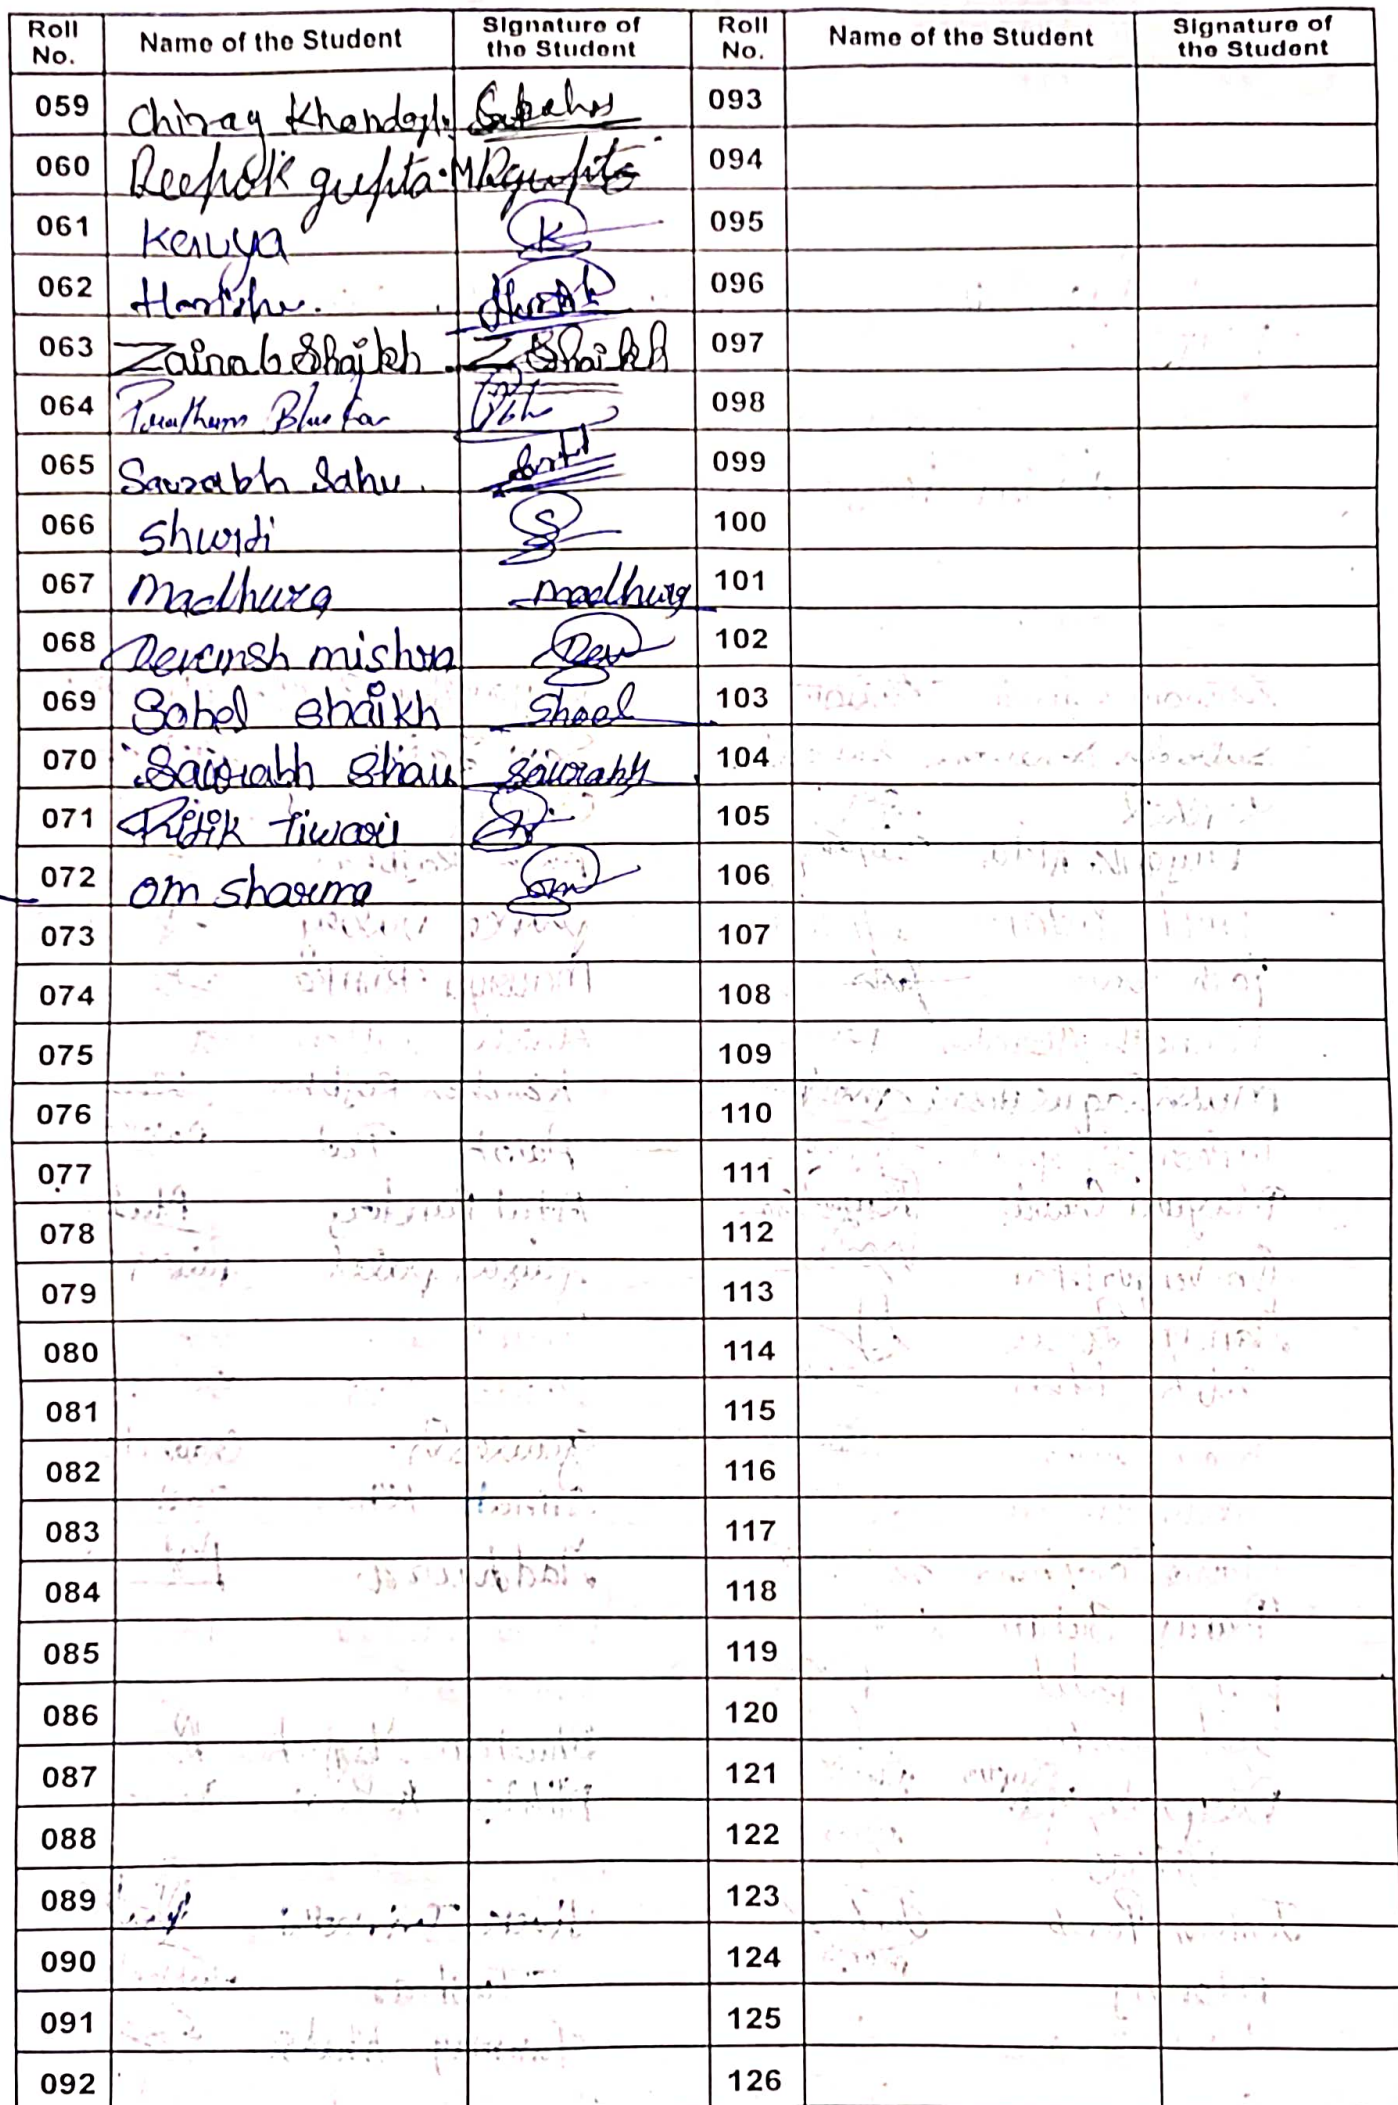 Roll No. Name of the Student Signature of the Student Roll No. Name of the Student Signature of the Student
059 Chirag 093
060 Deepak gupta 094
061 Kavya K 095
062 096
063 Zainab Shaikh Z Shaikh 097
064 098
065 Saurabh Sahu 099
066 Shruti S 100
067 Madhura madhura 101
068 Devansh mishra Dev 102
069 Sohel Shaikh Shoel 103
070 Saurabh Shau Saurabh 104
071 Ritik tiwari 105
072 om sharma om 106
073 107
074 108
075 109
076 110
077 111
078 112
079 113
080 114
081 115
082 116
083 117
084 118
085 119
086 120
087 121
088 122
089 123
090 124
091 125
092 126